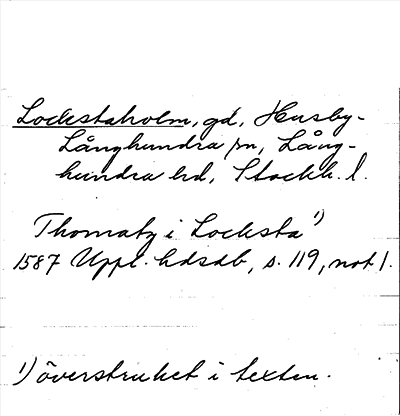 Lockstaholm, gd, Husby-
Långhundra sn, Lång-
hundra hd, Stockh. l.
Thomatz i Locksta 1)
1587 Uppl. hdsdb, s. 119, not 1.
1) överstruket i texten.